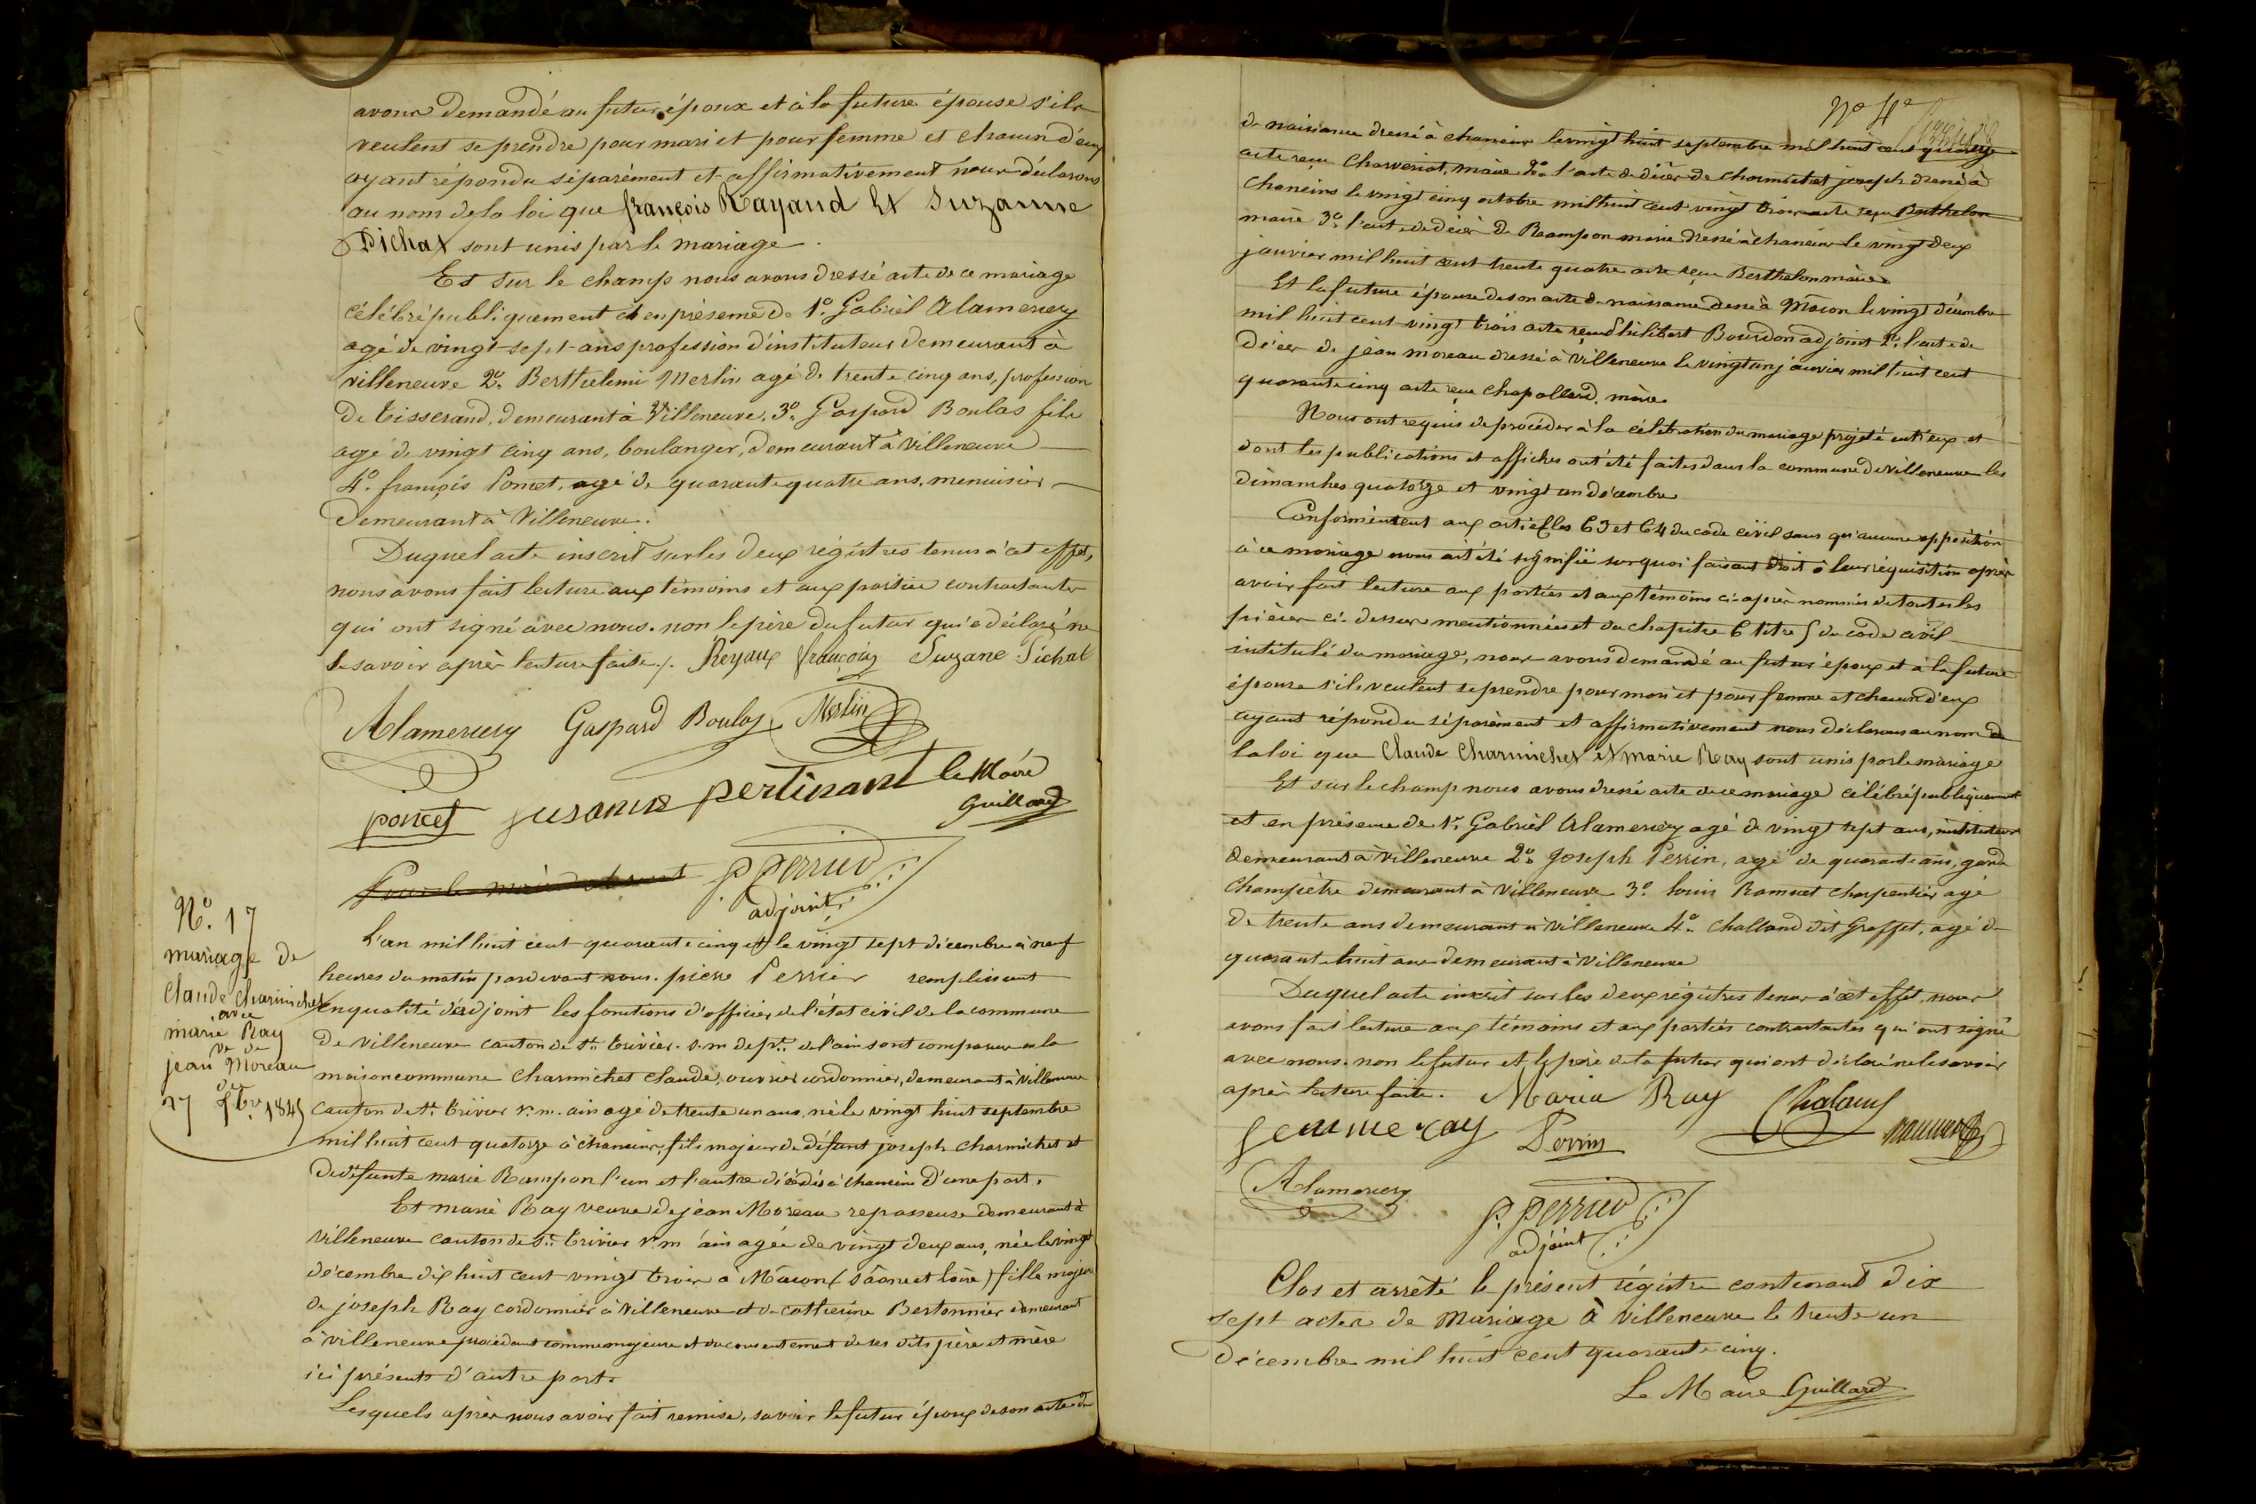 avons demandé au futur époux et à la future épouse s'ils
veulent se prendre pour mari et pour femme et chacun d'eux
ayant répondu séparément et affirmativement nous déclarons
au nom de la loi que françois Rayaud Et Suzanne
Pichat sont unis par le mariage.
Et sur le champ nous avons dressé acte de ce mariage
célébré publiquement et en présence de 1º. Gabriel Alamercery
agé de vingt-sept ans profession d'instituteur demeurant à
villeneuve 2º. Berthélemi Merlin agé de trente cinq ans, profession
De tisserand, demeurant à Villeneuve, 3º. Gaspard Boulas fils
agé de vingt cinq ans, boulanger, demeurant à Villeneuve
4º. françois Poncet, agé de quarante quatre ans, menuisier
Demeurant à Villeneuve.
Duquel acte inscrit sur les deux régistres tenus à cet effet,
nous avons fait lecture aux témoins et aux parties contractantes
qui ont signé avec nous. non le père du futur qui a déclaré ne
le savoir après lecture faite /. Reyaux francois Suzane Pichat
Alamercery Gaspard Boulas Merlin
poncet susanne pertinant le Maire
Guillard
P. Perrier
adjoint
Nº. 17
mariage de
Claude Charmichet
avec
marie Ray
ve de
jean Moreau
du
27 Xbre 1845
L'an mil huit cent quarante cinq et le vingt sept décembre à neuf
heures du matin pardevant nous. pierre Perrier remplissant
en qualité d'adjoint les fonctions d'officier de l'état civil de la commune
De Villeneuve canton de St. trivier. s. m. dept. de l'ain sont comparus en la
maison commune Charmichet Claude, ouvrier cordonnier, demeurant à Villeneuve
canton de St. trivier s. m. ain agé de trente un ans, né le vingt huit septembre
mil huit cent quatorze à chaneins, fils majeur de défunt joseph Charmichet et
De défunte marie Rampon l'un et l'autre décédés à chaneins d'une part.
Et marie Ray veuve de jean Moreau repasseuse demeurant à
Villeneuve canton de St. trivier s. m ain agée de vingt deux ans, née le vingt
décembre dix huit cent vingt trois à Mâcon (Saône et loire) fille majeure
de joseph Ray cordonnier à Villeneuve et de catherine Bertonnier demeurant
à Villeneuve procédant comme majeure et du consentement de ses dits père et mère
ici présents d'autre part.
Lesquels après nous avoir fait remise, savoir le futur époux de son acte de
Nº 4e
de naissance dressé à chaneins le vingt huit septembre mil huit cent quatorze
acte reçu Charveriat, maire 2º. l'acte de décès de charmichet joseph dressé à
Chaneins le vingt cinq octobre mil huit cent vingt trois acte reçu Berthelon
maire 3º. l'acte de décès de Rampon marie dressé à chaneins le vingt deux
janvier mil huit cent trente quatre acte reçu Berthelon maire
Et la future épouse de son acte de naissance dressé à Mâcon le vingt décembre
mil huit cent vingt trois acte reçu Philibert Bourdon adjoint 2º. l'acte de
décès de jean moreau dressé à Villeneuve le vingt un janvier mil huit cent
quarante cinq acte reçu Chapolard, maire
Nous ont requis de procéder à la célébration du mariage projeté entr'eux et
dont les publications et affiches ont été faites dans la commune de Villeneuve les
dimanches quatorze et vingt un décembre
Conformément aux articles 63 et 64 du code civil sans qu'aucune opposition
à ce mariage nous ait été signifiée sur quoi faisant droit à leur réquisition après
avoir fait lecture aux parties et aux témoins ci-après nommés de toutes les
pièces ci-dessus mentionnées et du chapitre 6 titre 5 du code civil
intitulé du mariage, nous avons demandé au futur époux et à la future
épouse s'ils veulent se prendre pour mari et pour femme et chacun d'eux
ayant répondu séparément et affirmativement nous déclarons au nom de
la loi que Claude Charmichet et marie Ray sont unis par le mariage
Et sur le champ nous avons dressé acte de ce mariage célébré publiquement
et en présence de 1º. Gabriel Alamercery agé de vingt sept ans, instituteur
demeurant à Villeneuve 2º. Joseph Perrin, agé de quarante ans, garde
Champêtre demeurant à Villeneuve 3º. louis Ramuet charpentier agé
de trente ans demeurant à Villeneuve 4º. Challand dit Greffet, agé de
quarante huit ans demeurant à Villeneuve
Duquel acte inscrit sur les deux régistres tenus à cet effet, nous
avons fait lecture aux témoins et aux parties contractantes qui ont signé
avec nous. non le futur et le père de la future qui ont déclaré ne le savoir
après lecture faite. Maria Ray Chaland
femme ray Perrin ramuet
Alamercery P. Perrier
adjoint
Clos et arrêté le présent régistre contenant dix
sept actes de Mariage à Villeneuve le trente un
décembre mil huit cent quarante cinq.
Le Maire Guillard